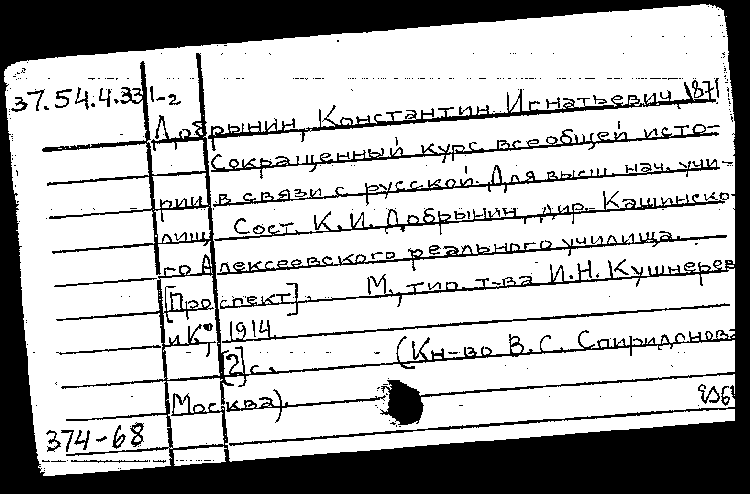 37.54.4.33 1-2
Добрынин, Константин Игнатьевич, 1871
Сокращенный курс всеобщей исто-
рии в связи с русской. Для высш. нач. учи-
лищ. Сост. К.И. Добрынин, дир. Кашинско-
го Алексеевского реального училища.
[Проспект]. М., тип. т-ва И.Н. Кушнерев
и К°, 1914.
[2] с. (Кн-во В.С. Спиридонова
Москва).
374-68